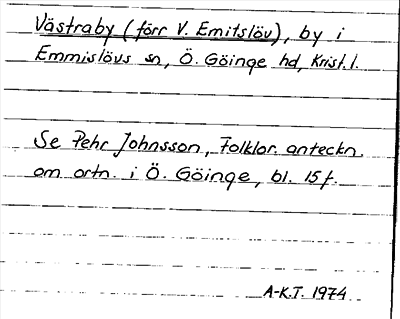 Västraby (förr V. Emitslöv), by i
Emmislövs sn, Ö. Göinge hd, Krist. l.
Se Pehr Johnsson, Folklor. anteckn.
om ortn. i Ö. Göinge, bl. 15 f.
A-K.T. 1974